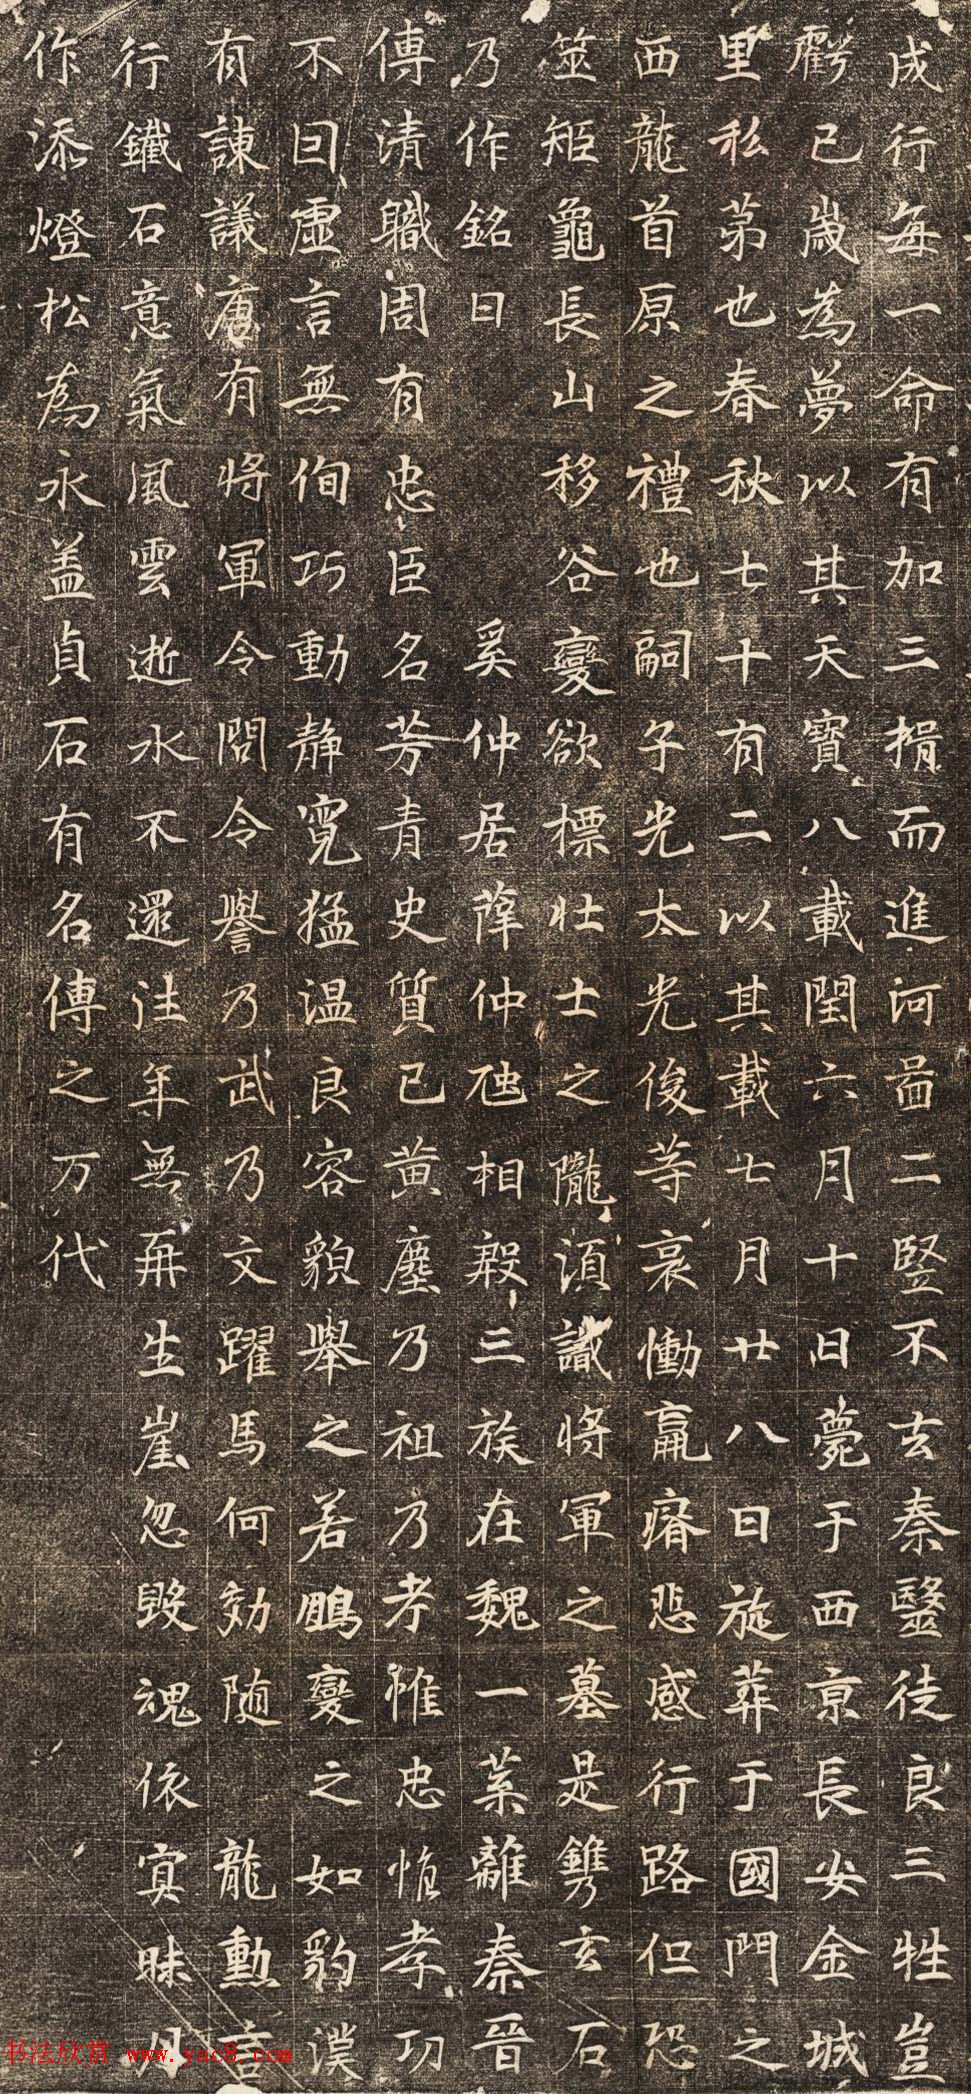 成行每一命有加三揖而進河圖二竪不去秦毉徒良三牲豈
虧已歲為夢以其天寶八載閏六月十日薨于西京長安金城
里私第也春秋七十有二以其載七月廿八日旋葬于國門之
西龍首原之禮也嗣子光太光俊等哀慟羸瘠悲感行路但恐
筮短龜長山移谷變欲標壯士之隴須識將軍之墓是鐫玄石
乃作銘曰 奚仲居薛仲虺相殷三族在魏一葉離秦晉
傳清職周有忠臣名芳青史質已黃塵乃祖乃考惟忠惟孝功
不囙虛言無佝巧動靜寬猛温良容貌舉之若鵬變之如豹漢
有諫議唐有將軍令問令譽乃武乃文躍馬何効随龍勳言
行鐵石意氣風雲逝水不還往年無再生崖忽毀魂依冥昧月
作添燈松為永盖貞石有名傳之万代
书法欣赏 www.yac8.com